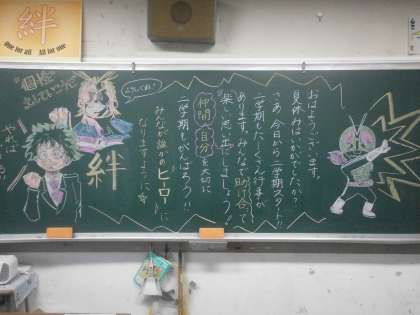 おはようございます。
夏休みはいかがでしたか？
さあ、今日から二学期スタート!!
二学期もたくさん行事が
あります。みんなで助け合って
楽しい思い出にしましょう!!
仲間、自分を大切に
二学期もがんばろう!!
みんなが誰かのヒーローに
なりますように☆
よろしくね!
絆
"個性"
出していこう
絆
one for all all for one